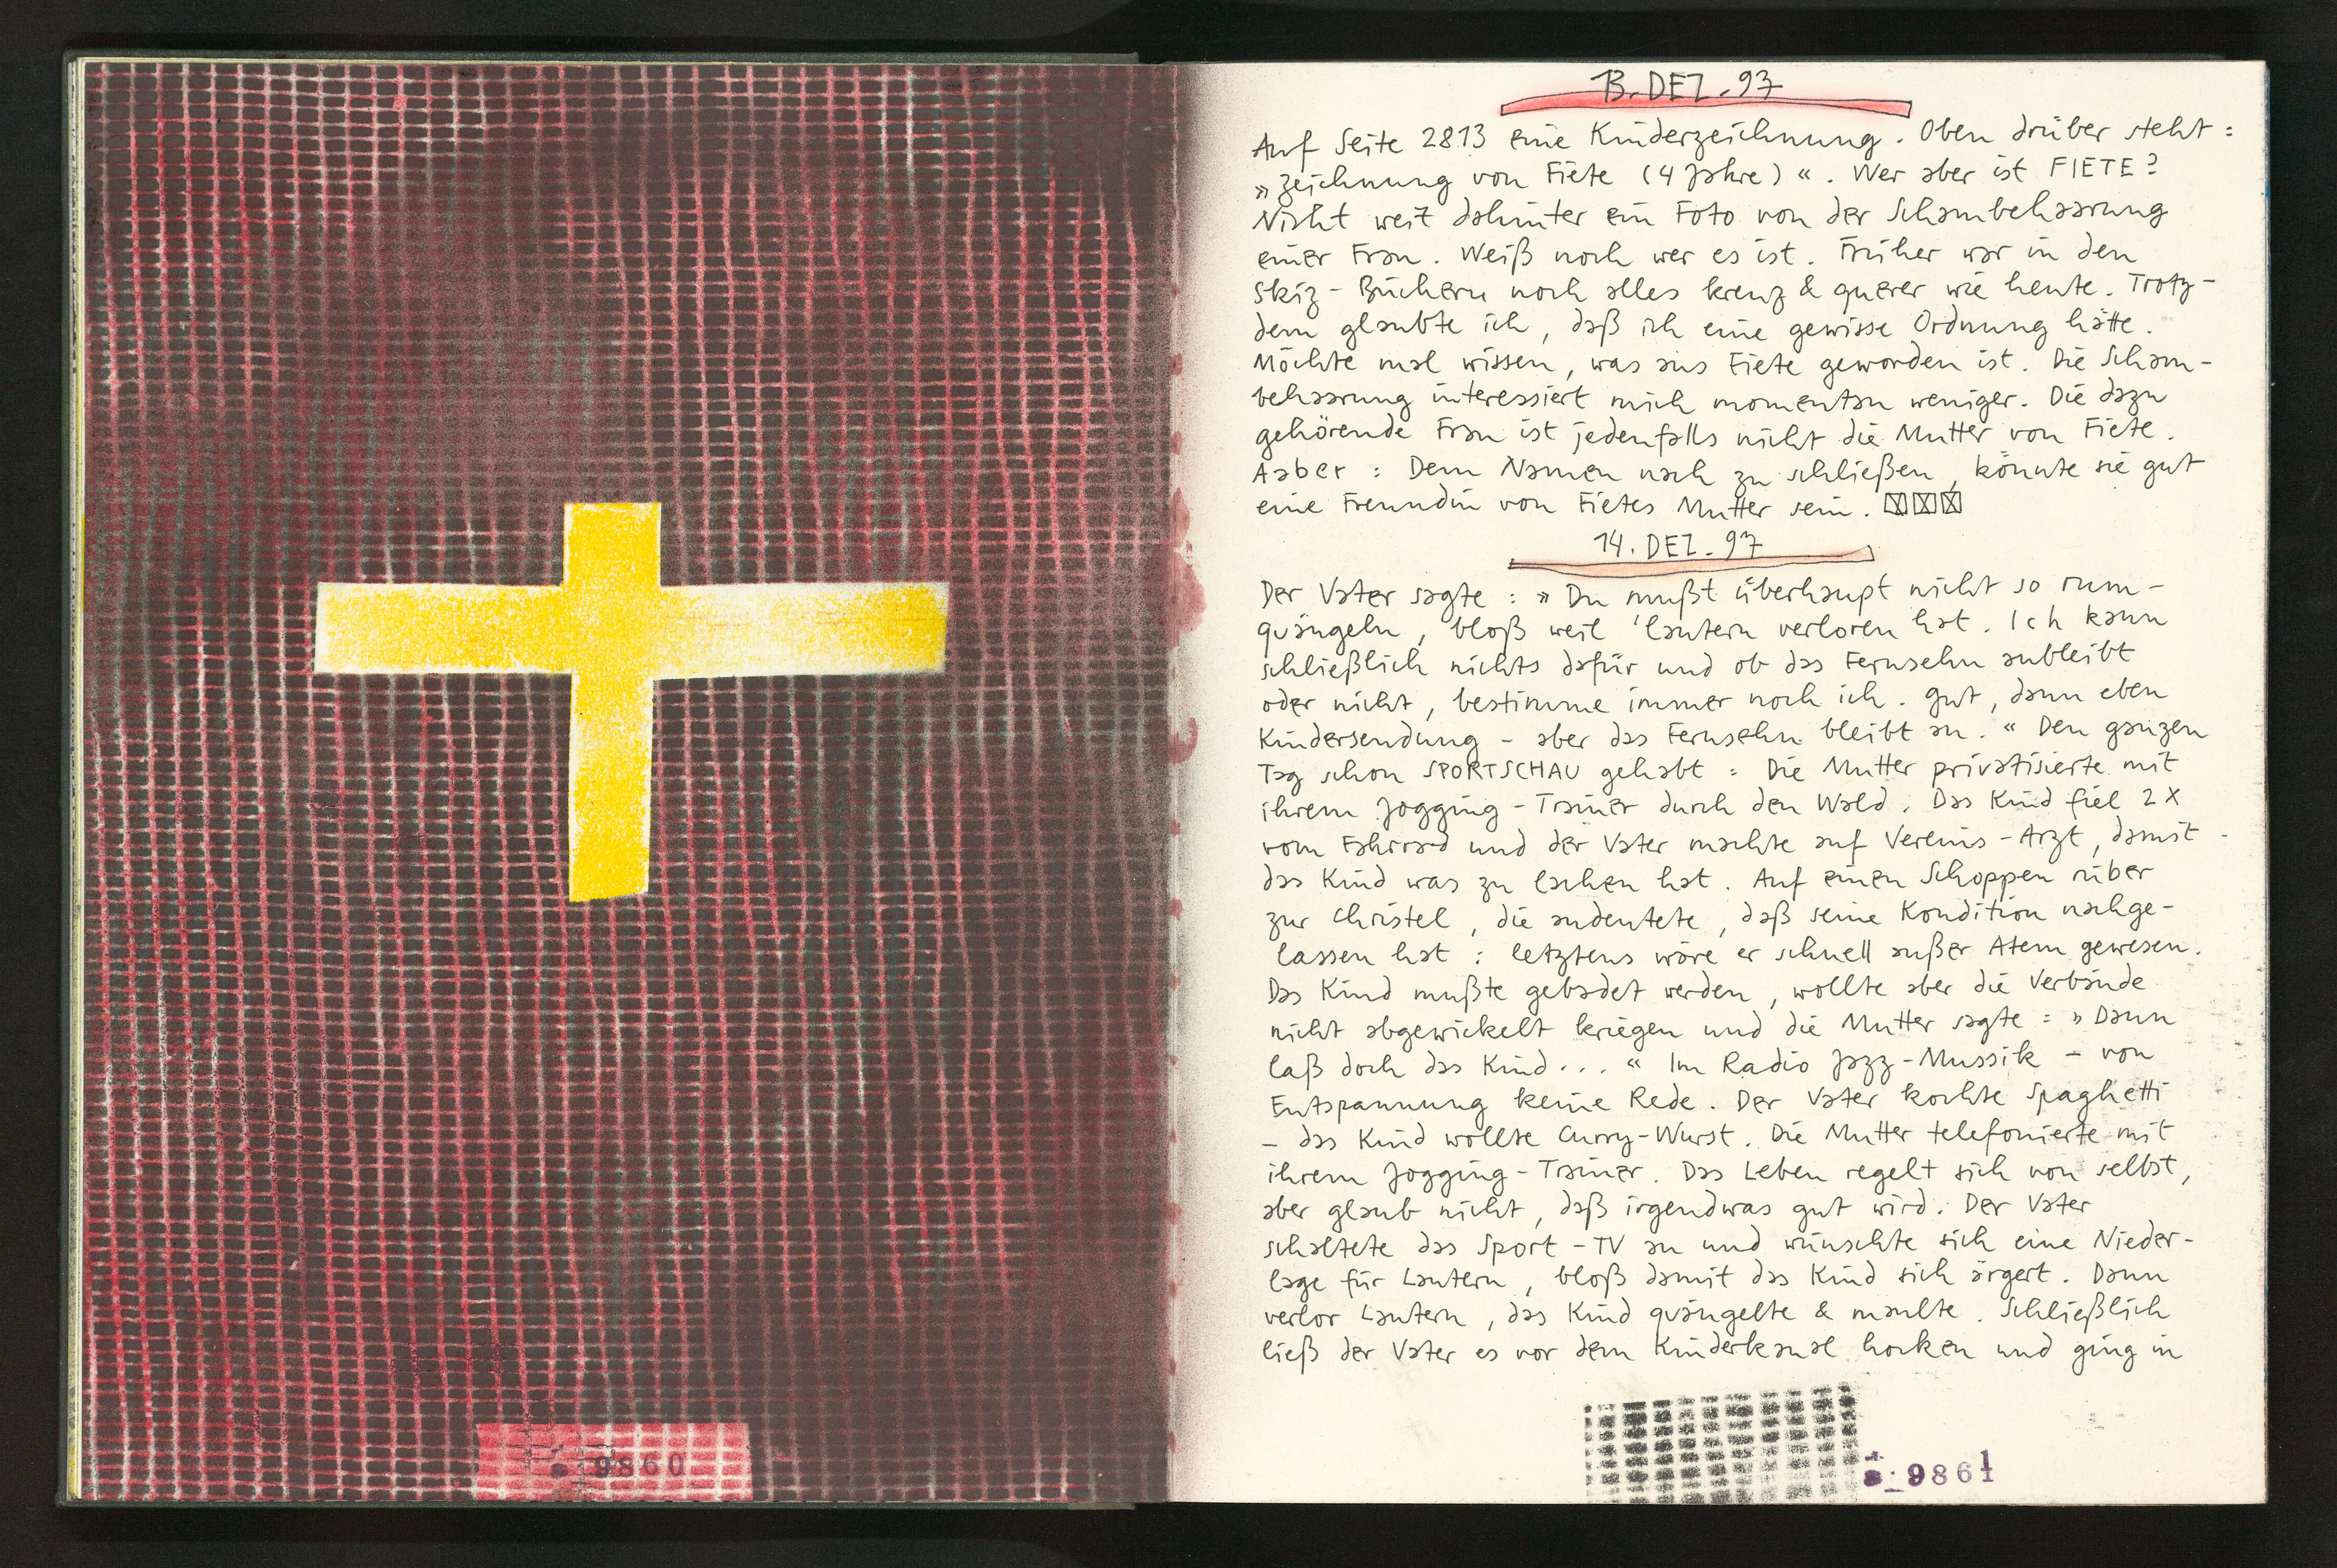 13. DEZ. 97
Auf Seite 2813 eine Kinderzeichnung. Oben drüber steht :
» Zeichnung von Fiete (4 Jahre) « . Wer aber ist FIETE ?
Nicht weit dahinter ein Foto von der Schambehaarung
einer Frau . Weiß noch wer es ist . Früher war in den
Skiz - Büchern noch alles kreuz & querer wie heute . Trotz -
dem glaubte ich , daß ich eine gewisse Ordnung hätte .
Möchte mal wissen , was aus Fiete geworden ist . Die Scham -
behaarung interessiert mich momentan weniger . Die dazu
gehörende Frau ist jedenfalls nicht die Mutter von Fiete .
Aaber : Dem Namen nach zu schließen , könnte sie gut
eine Freundin von Fietes Mutter sein .
14. DEZ. 97
Der Vater sagte : » Du mußt überhaupt nicht so rum -
quängeln , bloß weil 'lautern verloren hat . Ich kann
schließlich nichts dafür und ob das Fernsehn anbleibt
oder nicht , bestimme immer noch ich . Gut , dann eben
Kindersendung - aber das Fernsehn bleibt an . « Den ganzen
Tag schon SPORTSCHAU gehabt : Die Mutter privatisierte mit
ihrem Jogging - Trainer durch den Wald . Das Kind fiel 2 X
vom Fahrrad und der Vater machte auf Vereins - Arzt , damit
das Kind was zu lachen hat . Auf einen Schoppen rüber
zur Christel , die andeutete , daß seine Kondition nachge -
lassen hat : letztens wäre er schnell außer Atem gewesen .
Das Kind mußte gebadet werden , wollte aber die Verbände
nicht abgewickelt kriegen und die Mutter sagte : » Dann
laß doch das Kind . . . « Im Radio Jazz - Mussik - von
Entspannung keine Rede . Der Vater kochte Spaghetti
- das Kind wollte Curry - Wurst . Die Mutter telefonierte mit
ihrem Jogging - Trainer . Das Leben regelt sich von selbst ,
aber glaub nicht , daß irgendwas gut wird . Der Vater
schaltete das Sport - TV an und wünschte sich eine Nieder -
lage für Lautern , bloß damit das Kind sich ärgert . Dann
verlor Lautern , das Kind quängelte & maulte . Schließlich
ließ der Vater es vor dem Kinderkanal hocken und ging in
9860
9861